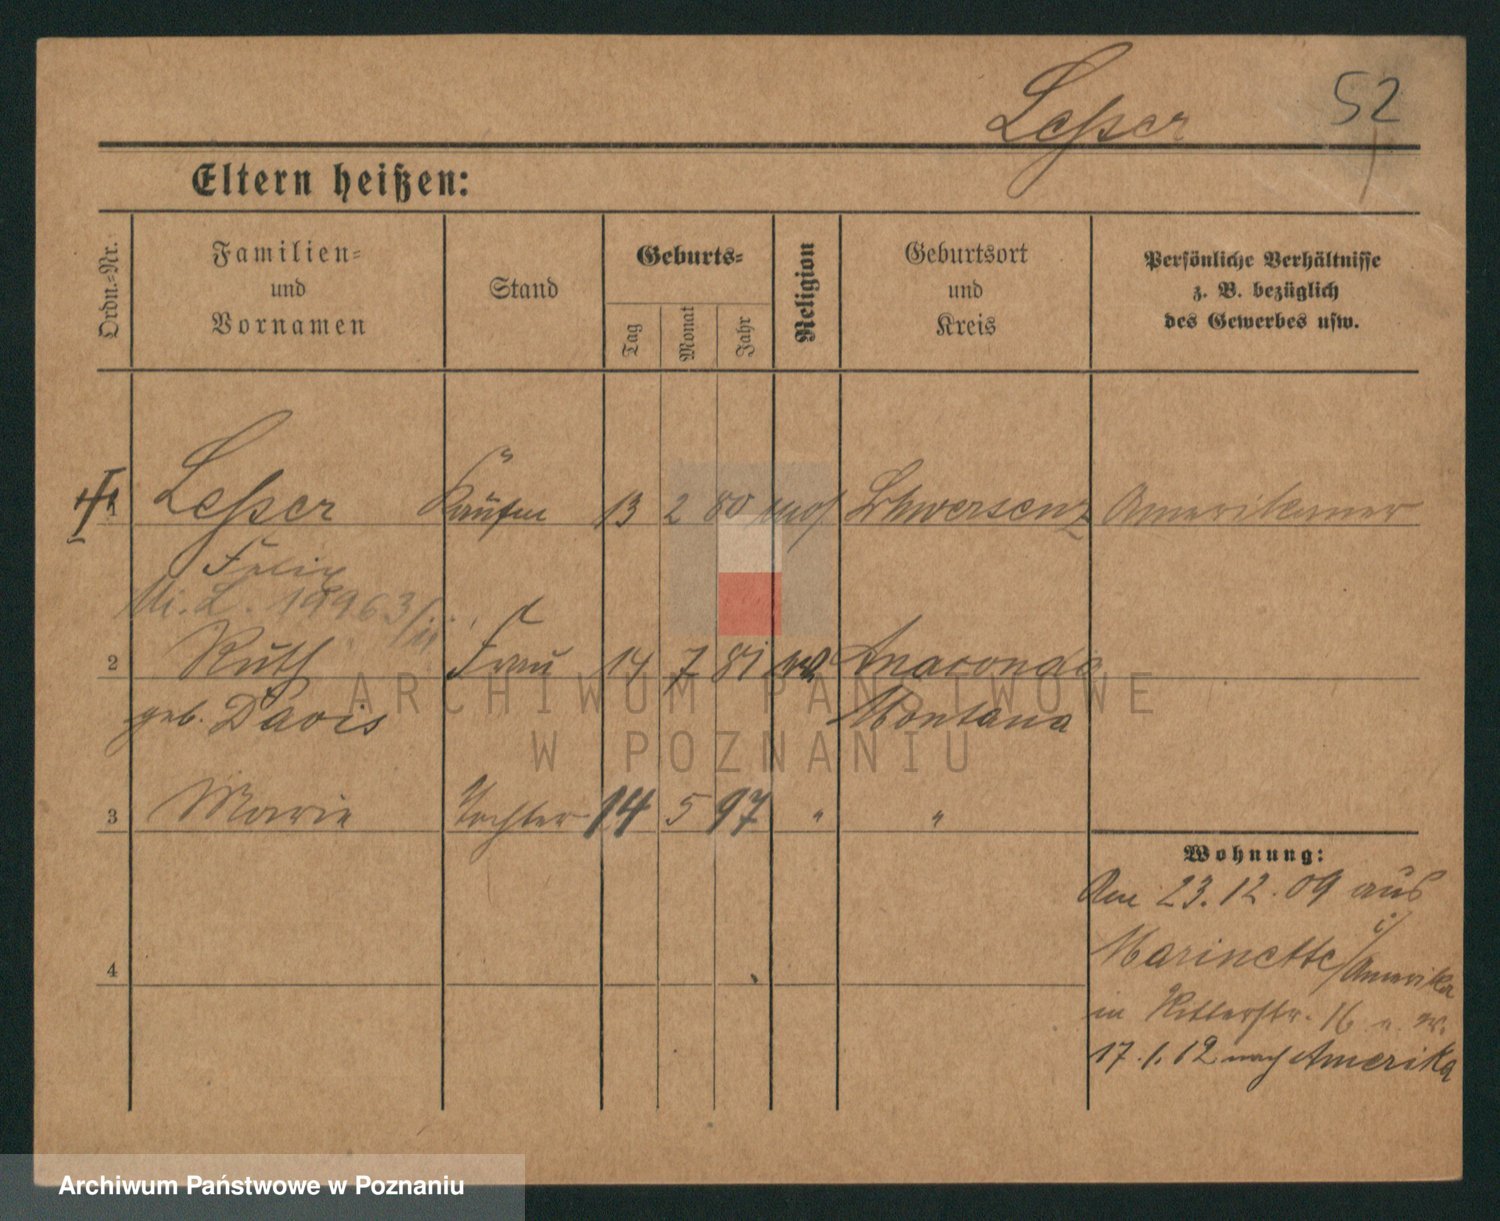 Leßer
52
Eltern heißen:
Ordn.-Nr.
Familien-
und
Vornamen
Stand
Geburts-
Tag
Monat
Jahr
Religion
Geburtsort
und
Kreis
Persönliche Verhältnisse
z. B. bezüglich
des Gewerbes usw.
Leßer 13 2 80 mos Schwersenz Amerikaner
Felix
2 Ruth Frau 14 7 81 Anaconda
geb. Davis Montana
3 Marie Tochter 14 5 97 " "
Wohnung:
Am 23.12.09 aus
Marinette i/Amerika
in Ritterstr. 16
17.1.12 nach Amerika
4
ARCHIWUM PAŃSTWOWE
W POZNANIU
Archiwum Państwowe w Poznaniu